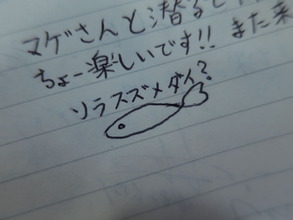 マゲさんと潜ると
ちょー楽しいです!! また来
ソラスズメダイ?